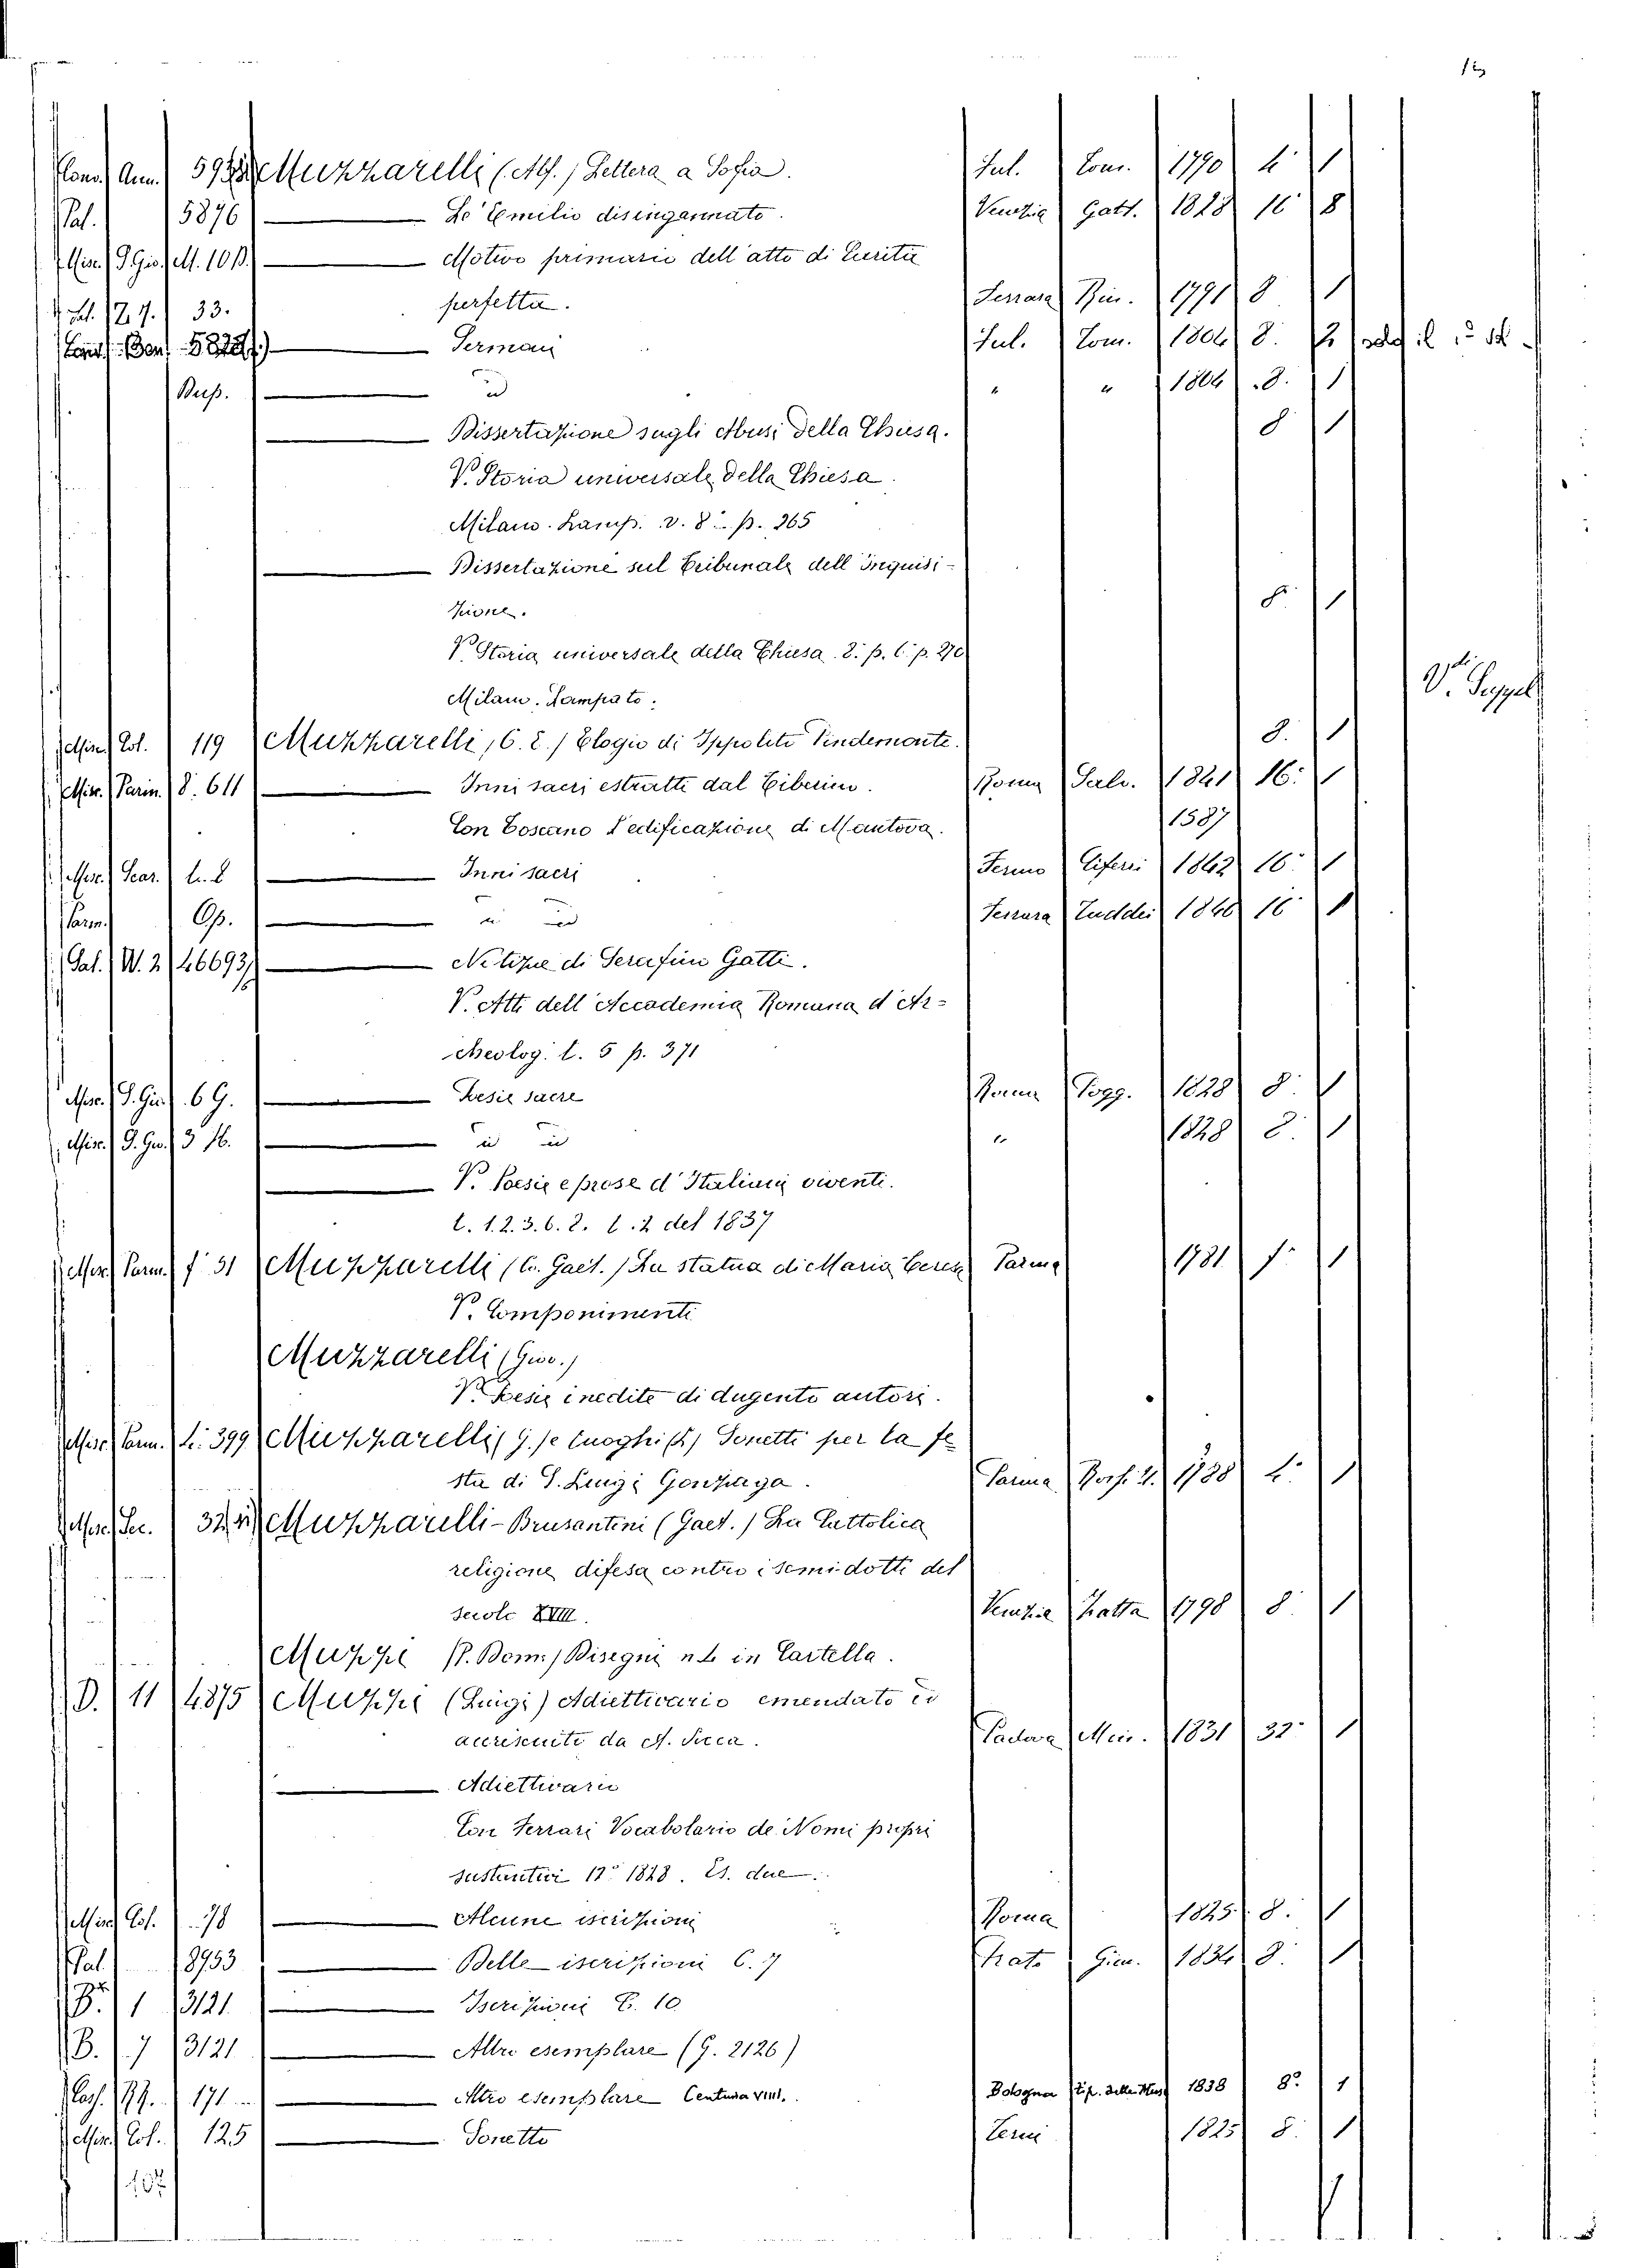 Ann. Muzzarelli (Alf.) Lettera a Sofia. Ful. Tom. 1790 4 1
Pal. 5876 Lo Emilio disingannato. Venezia Gatt. 1828 16 8
Misc. P. Gio. M. 10 B. Motivo primario dell'atto di Carità
33. perfetta. Ferrara Rin. 1791 8 1
Sermani Ful. Tom. 1804 8. 2
Busp. id " " 1804 8. 1
Dissertazione sugli Abusi della Chiesa. 8 1
V. Storia universale della Chiesa
Milano. Lamp. v. 8. p. 365
Dissertazione sul Tribunale dell'Inquisi-
zione. 8 1
V. Storia universale della Chiesa. 8. p. 6. p. 270
Milano. Lampato.
V. Suppl.
Misc. Col. 119 Muzzarelli (C. E.) Elogio di Ippolito Pindemonte. 8. 1
Misc. Parm. 8. 611 Inni sacri estratti dal Tiberino. Roma Salv. 1841 16. 1
Con Toscano L'edificazione di Mantova. 1587
Misc. Inni sacri Fermo Ciferri 1842 16. 1
Parm. Op. " id Ferrara Taddei 1840 16 1
Pal. W. 2 46693 Notizie di Serafino Gatti.
V. Atti dell'Accademia Romana d'Ar-
cheolog. t. 5 p. 371
Misc. P. Gio. 6 G. Poesie sacre Roma Pogg. 1828 8. 1
Misc. P. Gio. 3 H. id id " 1828 8. 1
V. Poesie e prose d'Italiani viventi.
t. 1. 2. 3. 6. 8. t. 2 del 1837
Misc. Parm. f. 31 Muzzarelli (C. Gaet.) La statua di Maria Teresa Parma 1781 f. 1
V. Componimenti
Muzzarelli (Gio.)
V. Poesie inedite di dugento autori.
Misc. Parm. 4. 399 Muzzarelli (G. Sonetti per la fe
sta di S. Luigi Gonzaga. Parma 1788 4. 1
Misc. Muzzarelli-Brusantini (Gaet.) La Cattolica
religione difesa contro i semidotti del
secolo XVIII. Venezia Zatta 1798 8. 1
Muzzi (P. Dom.) Disegni n. 4 in Cartella.
D. 11 4875 Muzzi (Luigi) Adiettivario emendato ed
accresciuto da A. Sicca. Padova Min. 1831 32. 1
Adiettivario
Con Ferrari Vocabolario de Nomi propri
sustantivi 12.º 1828. Es. due.
Misc. Col. 78 Alcune iscrizioni Roma 1825 8. 1
Pal. 8953 Belle iscrizioni C. 7 Prato Giac. 1834 8. 1
B. 1 3121 Iscrizioni C. 10
B. 7 3121 Altro esemplare (G. 2126)
171 Altro esemplare Centuria VIII. Bologna tip. delle Muse 1838 8.º 1
Misc. Col. 125 Sonetto Terni 1825 8. 1